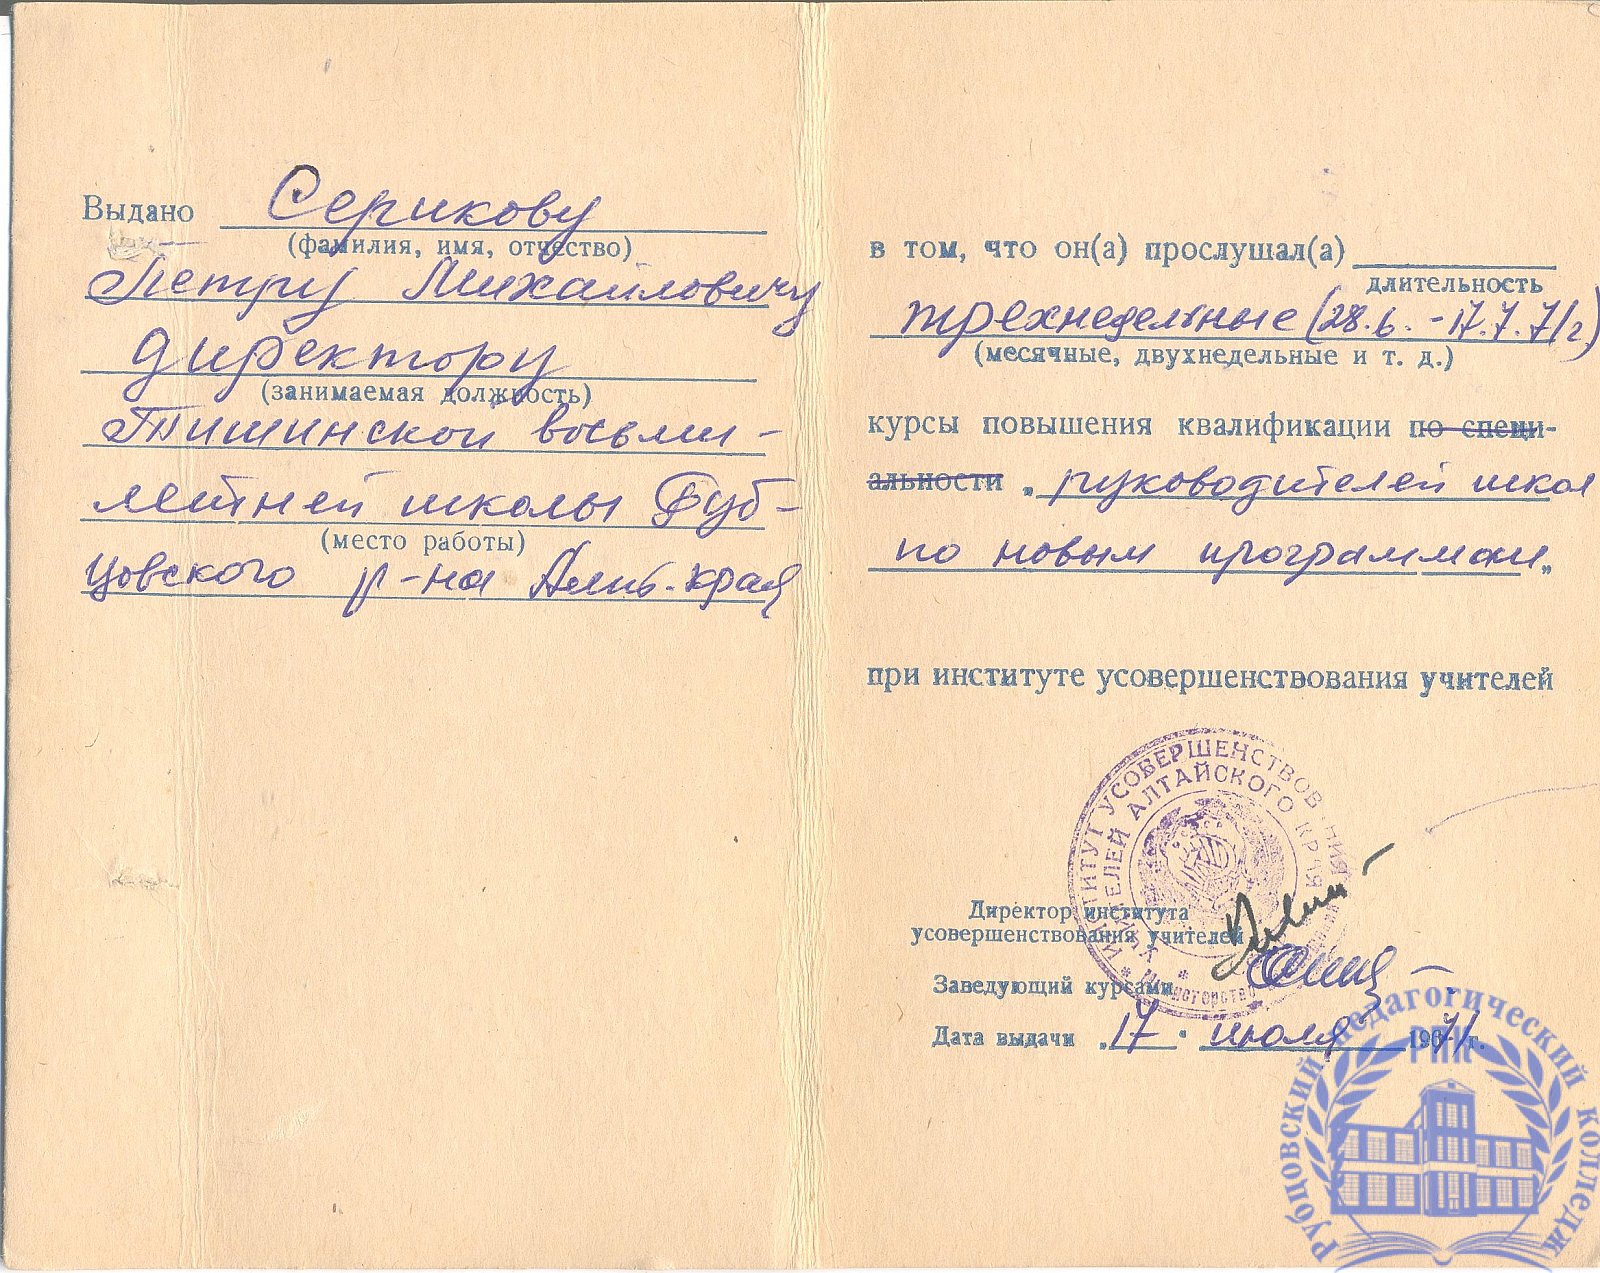 Выдано Серикову
(фамилия, имя, отчество)
Петру Михайловичу
директору
(занимаемая должность)
Тишинской восьми-
летней школы Руб-
(место работы)
цовского р-на Алт. края
в том, что он(а) прослушал(а)
длительность
трехнедельные (28.6. - 17.7.71г.)
(месячные, двухнедельные и т. д.)
курсы повышения квалификации по специ-
альности „руководителей школ
по новым программам„
при институте усовершенствования учителей
ИНСТИТУТ УСОВЕРШЕНСТВОВАНИЯ
УЧИТЕЛЕЙ АЛТАЙСКОГО КРАЯ
Министерство
Директор института
усовершенствования учителей
Заведующий курсами
Дата выдачи „17" июля 1971 г.
Рубцовский педагогический колледж
РПК